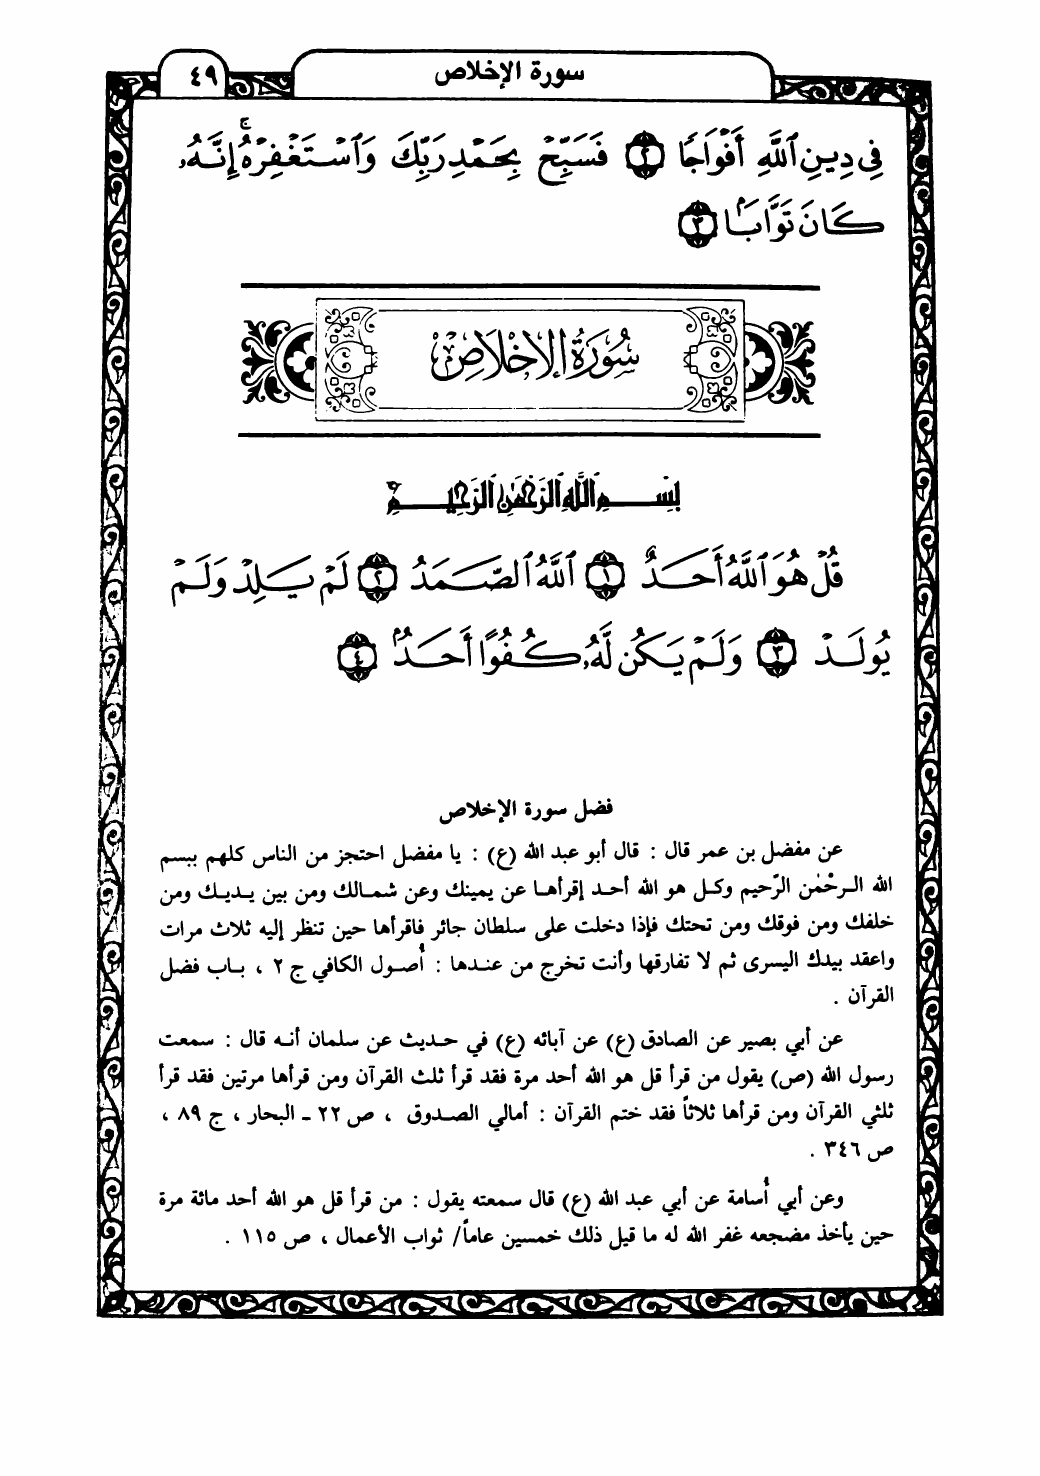 سورة الإخلاص ٤٩
فِي دِينِ ٱللَّهِ أَفْوَاجًا ٢ فَسَبِّحْ بِحَمْدِ رَبِّكَ وَٱسْتَغْفِرْهُ ۚ إِنَّهُۥ
كَانَ تَوَّابًۢا ٣
سُورَةُ الإِخْلَاصِ
بِسْمِ ٱللَّهِ ٱلرَّحْمَٰنِ ٱلرَّحِيمِ
قُلْ هُوَ ٱللَّهُ أَحَدٌ ١ ٱللَّهُ ٱلصَّمَدُ ٢ لَمْ يَلِدْ وَلَمْ
يُولَدْ ٣ وَلَمْ يَكُن لَّهُۥ كُفُوًا أَحَدٌۢ ٤
فضل سورة الإخلاص
عن مفضل بن عمر قال : قال أبو عبد الله (ع) : يا مفضل احتجز من الناس كلهم ببسم
الله الرحْمٰن الرّحيم وكل هو الله أحد إقرأها عن يمينك وعن شمالك ومن بين يديك ومن
خلفك ومن فوقك ومن تحتك فإذا دخلت على سلطان جائر فاقرأها حين تنظر إليه ثلاث مرات
واعقد بيدك اليسرى ثم لا تفارقها وأنت تخرج من عندها : أُصول الكافي ج ٢ ، باب فضل
القرآن .
عن أبي بصير عن الصادق (ع) عن آبائه (ع) في حديث عن سلمان أنه قال : سمعت
رسول الله (ص) يقول من قرأ قل هو الله أحد مرة فقد قرأ ثلث القرآن ومن قرأها مرتين فقد قرأ
ثلثي القرآن ومن قرأها ثلاثاً فقد ختم القرآن : أمالي الصدوق ، ص ٢٢ ـ البحار ، ج ٨٩ ،
ص ٣٤٦ .
وعن أبي أُسامة عن أبي عبد الله (ع) قال سمعته يقول : من قرأ قل هو الله أحد مائة مرة
حين يأخذ مضجعه غفر الله له ما قيل ذلك خمسين عاماً/ ثواب الأعمال ، ص ١١٥ .